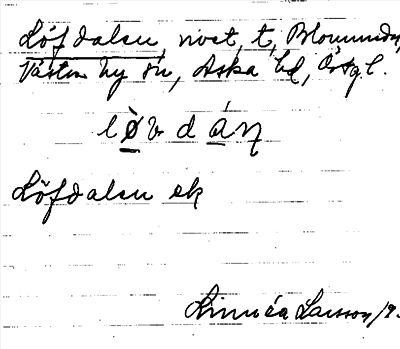 Löfdalen, nost, t, Blommedal,
Västra Ny sn, Aska hd, Östgl.
lòvdán
Löfdalen ek
Linnéa Larsson